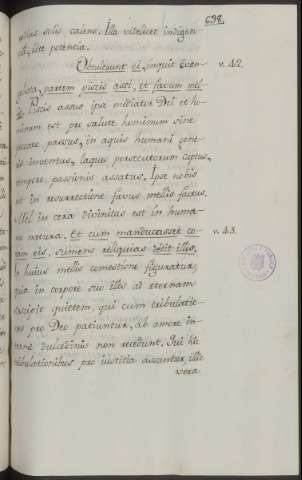 638.
radius solis calens. Illa videlicet indigen-
ti, ista potentia.
Obtulerunt ei, inquit Evan-
v. 42.
gelista, partem piscis assi, et favum mel-
lis. Piscis assus ipse mediator Dei et ho-
minum est pro salute hominum sine
peccato passus, in aquis humani gene-
ris inventus, laqueo persecutorum captus,
tempore passionis assatus. Ipse nobis
et in resurrectione favus mellis factus.
Mel in cera divinitas est in huma-
na natura. Et cum manducasset co-
v. 43.
ram eis, sumens reliquias dedit illis.
In huius mellis comestione figuratur,
quia in corpore suo illos ad eternam
suscipit quietem, qui cum tribulatio-
nes pro Deo patiuntur, ab amore in-
terne dulcedinis non recedunt. Qui hic
tribulationibus pro iustitia assantur, illic
vera